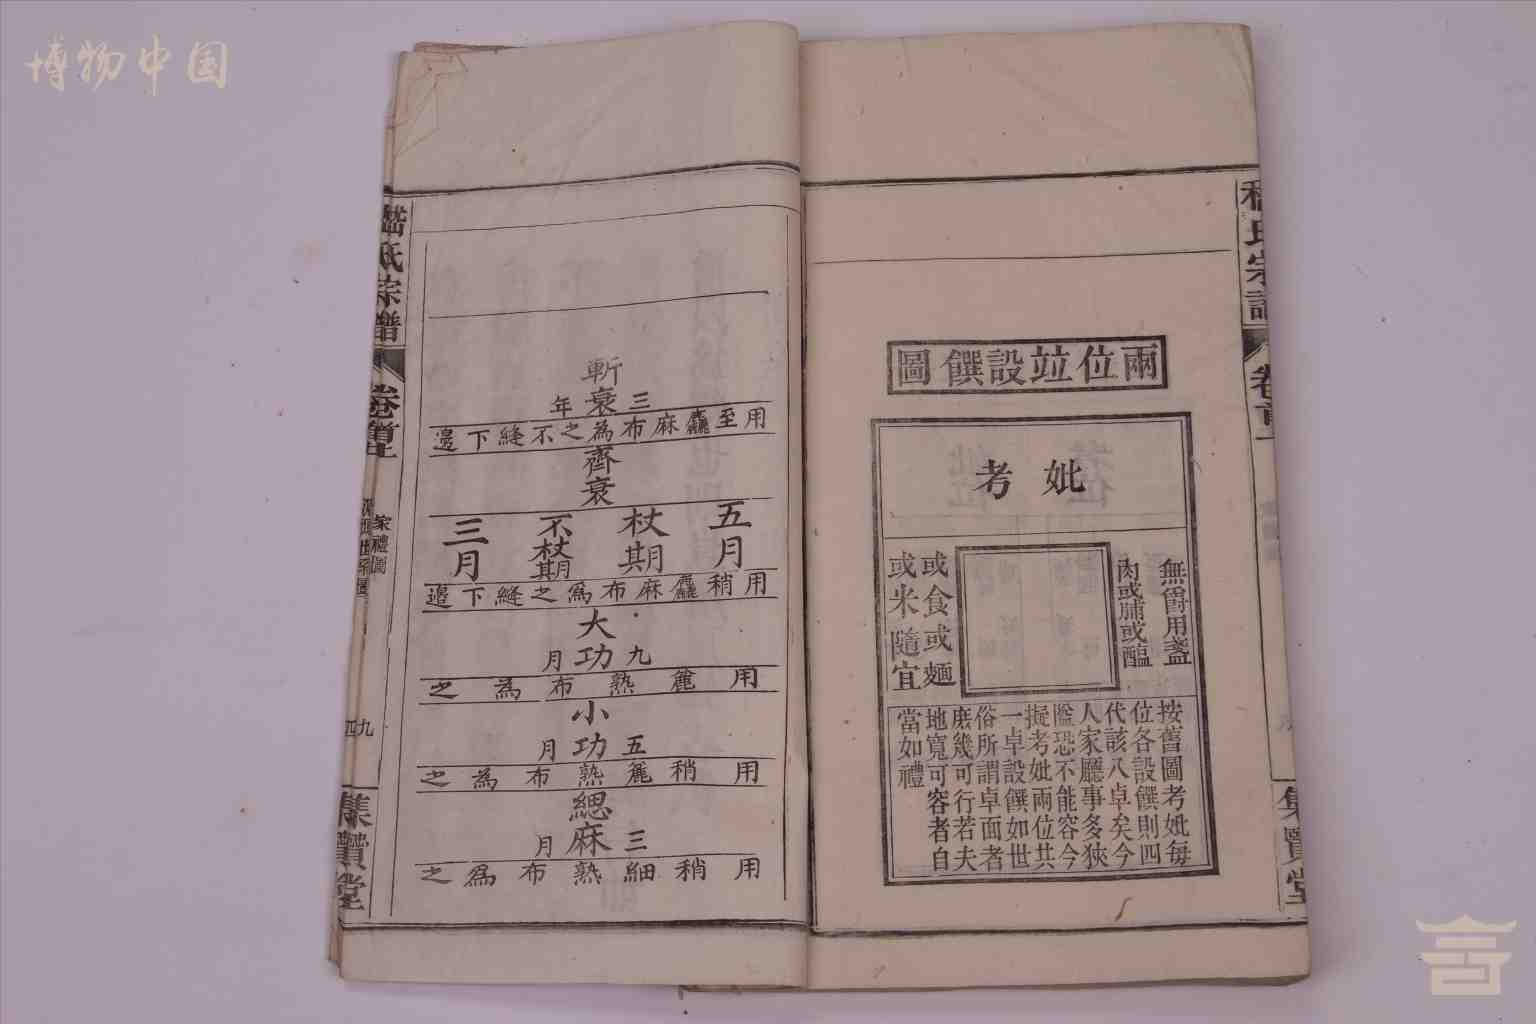 博物中国
兩位竝設饌圖
考妣
無爵用盞
肉或脯或醢
或食或麵
或米隨宜
按舊圖考妣每
位各設饌則四
代該八卓矣今
人家廳事多狹
隘恐不能容今
擬考妣兩位共
一卓設饌如世
俗所謂卓面者
庶幾可行若夫
地寬可容者自
當如禮
氏宗譜
卷首
集賢堂
斬衰三年
用至麤麻布為之不縫下邊
齊衰
五月
杖期
不杖期
三月
用稍麤麻布為之縫下邊
大功九月
用麄熟布為之
小功五月
用稍麄熟布為之
緦麻三月
用稍細熟布為之
嵇氏宗譜
卷首上
家禮圖
集賢堂